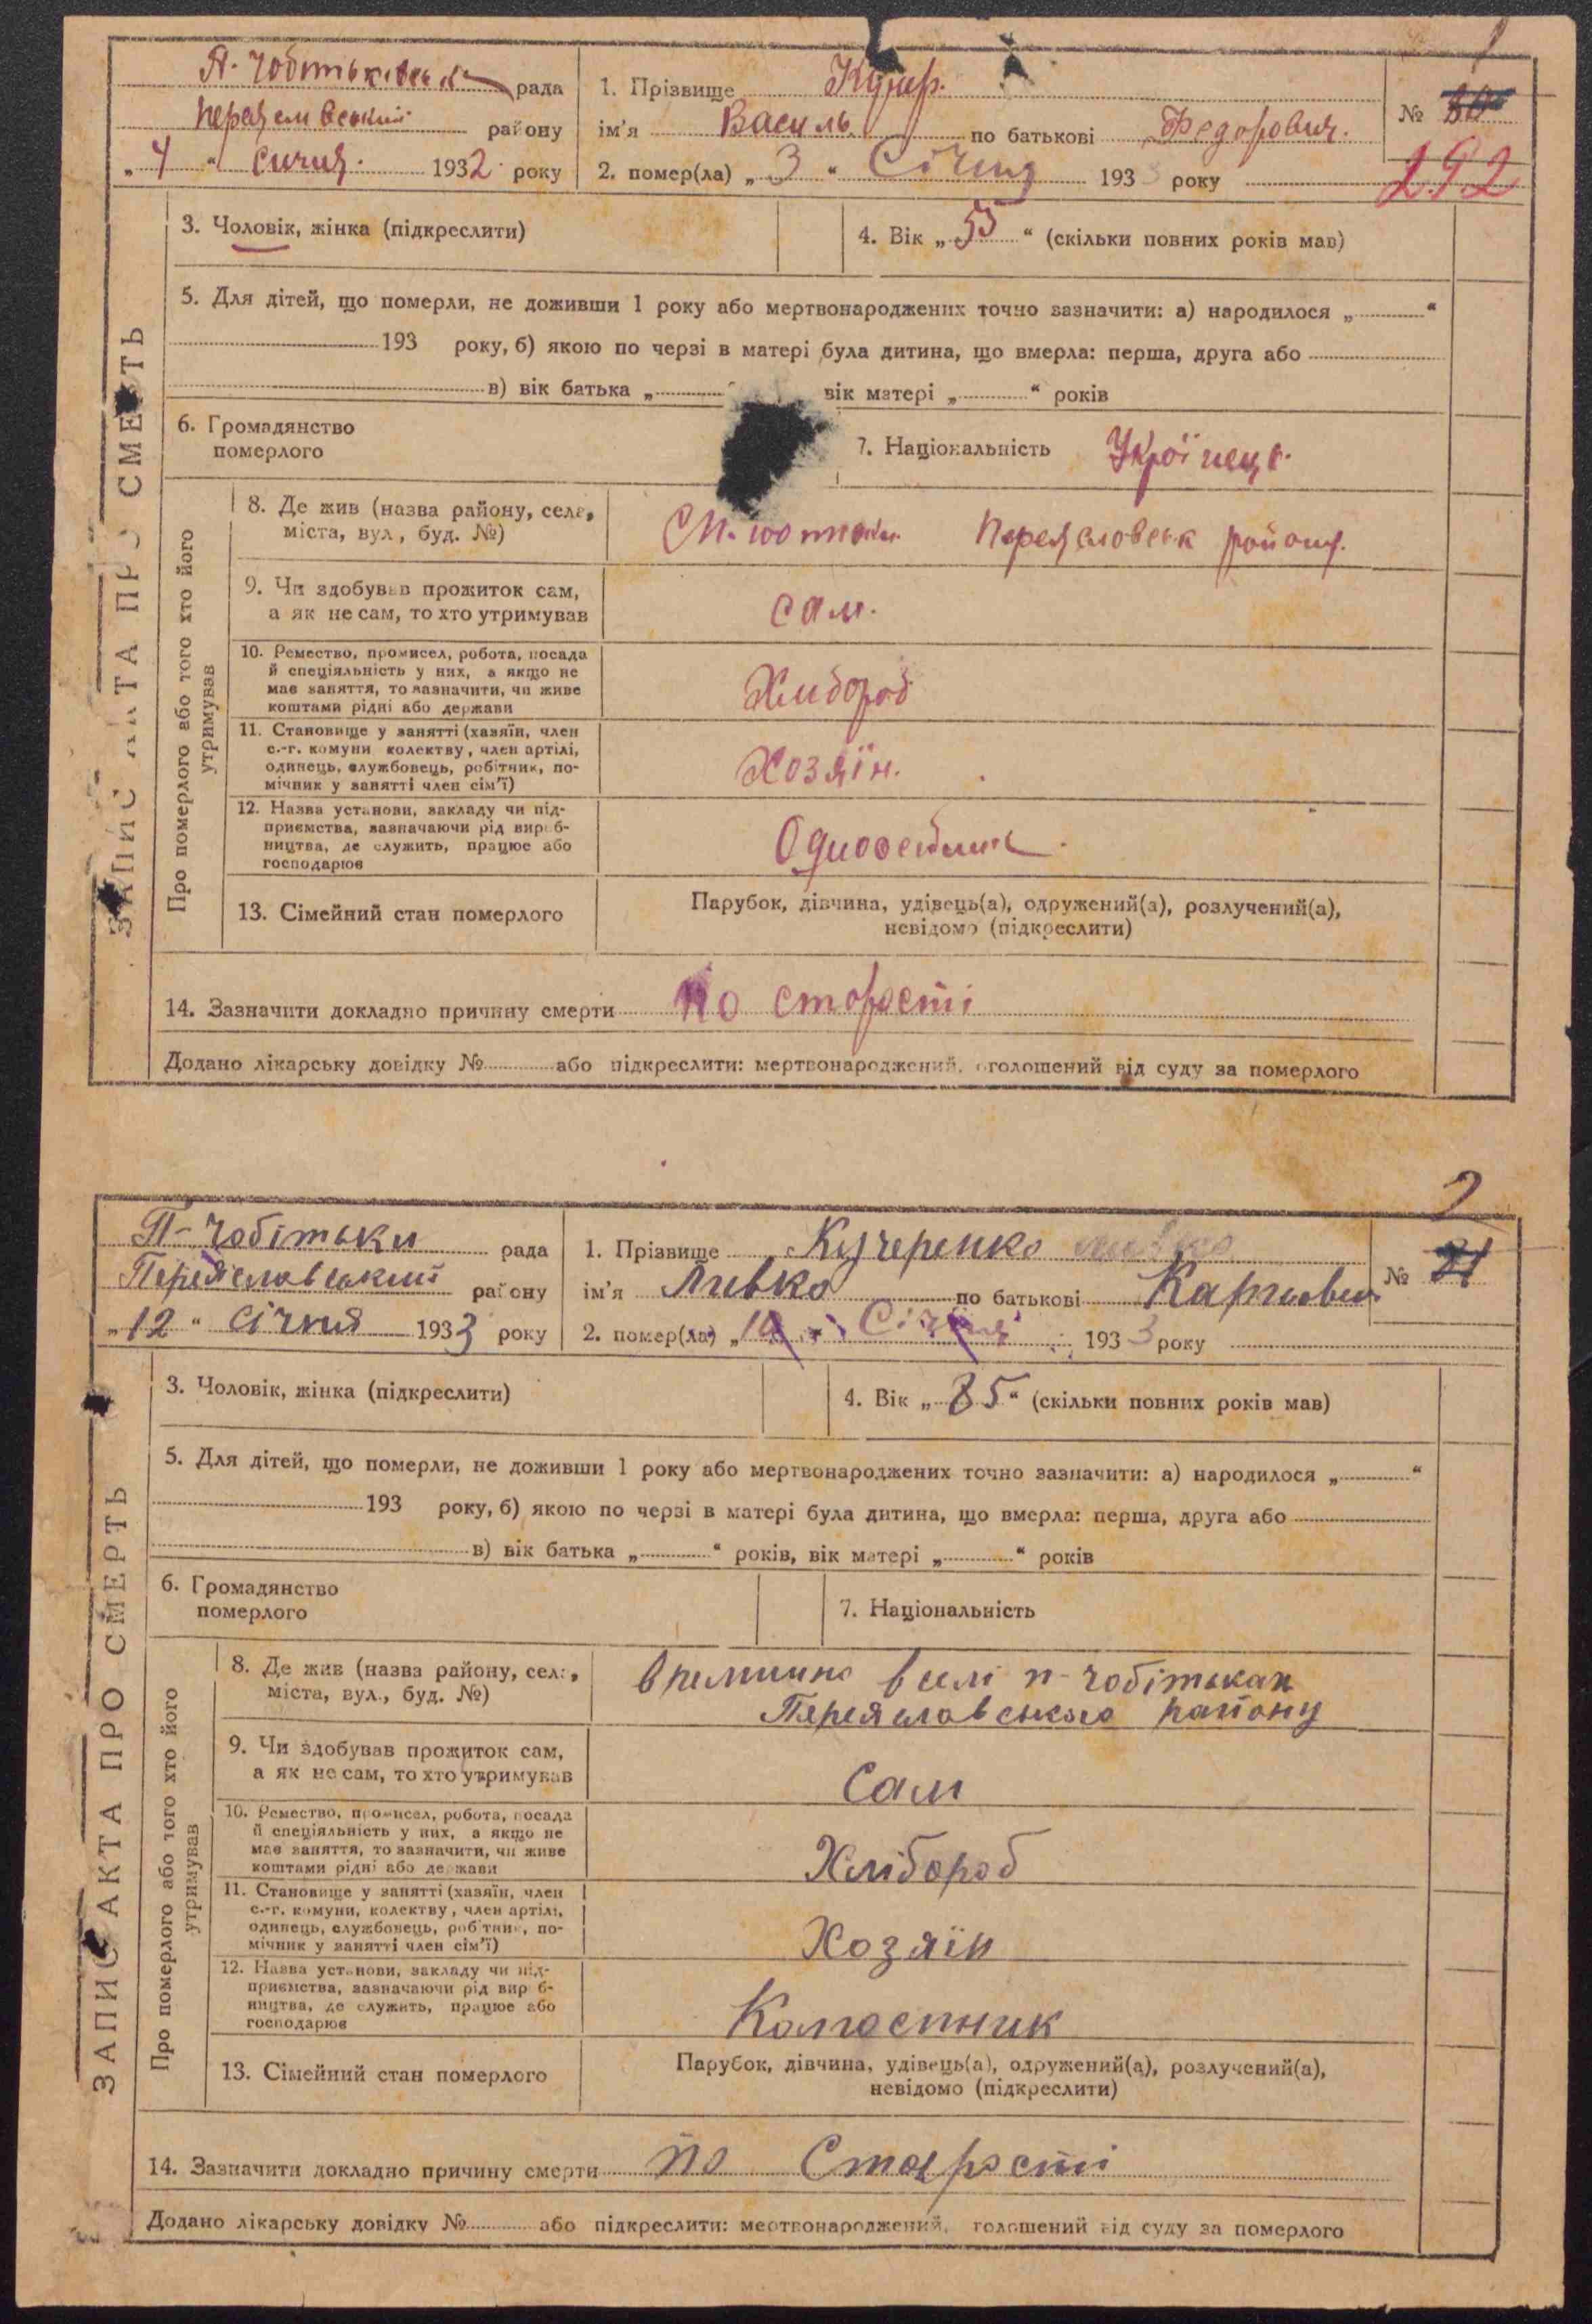 рада
1. Прізвище
1
Переяславський району
ім'я Василь по батькові Федорович.
№
„4“ сичня. 1932 року
2. помер(ла) „3“ Січня 1933 року
192
ЗАПИС АКТА ПРО СМЕРТЬ
3. Чоловік, жінка (підкреслити)
4. Вік „55“ (скільки повних років мав)
5. Для дітей, що померли, не доживши 1 року або мертвонароджених точно зазначити: а) народилося „ “
193 року, б) якою по черзі в матері була дитина, що вмерла: перша, друга або
в) вік батька „ вік матері „ “ років
6. Громадянство
померлого
7. Національність Українець.
Про померлого або того хто його
утримував
8. Де жив (назва району, села,
міста, вул., буд. №)
Переяславськ району.
9. Чи здобував прожиток сам,
а як не сам, то хто утримував
сам.
10. Ремество, промисел, робота, посада
й спеціяльність у них, а якщо не
має заняття, то зазначити, чи живе
коштами рідні або держави
Хлибороб
11. Становище у занятті (хазяїн, член
с.-г. комуни колектву, член артілі,
одинець, службовець, робітник, по-
мічник у занятті член сім'ї)
Хозяїн.
12. Назва установи, закладу чи під-
приємства, зазначаючи рід вироб-
ництва, де служить, працює або
господарює
Одноосібник.
13. Сімейний стан померлого
Парубок, дівчина, удівець(а), одружений(а), розлучений(а),
невідомо (підкреслити)
14. Зазначити докладно причину смерти по старості
Додано лікарську довідку № або підкреслити: мертвонароджений, оголошений від суду за померлого
2
П-Чобітьки рада
1. Прізвище Кучеренко
Переяславський району
ім'я Ливко по батькові
№ 21
„12“ січня 1933 року
2. помер(ла) „10“ Січня 1933 року
ЗАПИС АКТА ПРО СМЕРТЬ
3. Чоловік, жінка (підкреслити)
4. Вік „85“ (скільки повних років мав)
5. Для дітей, що померли, не доживши 1 року або мертвонароджених точно зазначити: а) народилося „ “
193 року, б) якою по черзі в матері була дитина, що вмерла: перша, друга або
в) вік батька „ “ років, вік матері „ “ років
6. Громадянство
померлого
7. Національність
Про померлого або того хто його
утримував
8. Де жив (назва району, села,
міста, вул., буд. №)
в селі п-чобітьках
Переяславського району
9. Чи здобував прожиток сам,
а як не сам, то хто утримував
Сам
10. Ремество, промисел, робота, посада
й спеціяльність у них, а якщо не
має заняття, то зазначити, чи живе
коштами рідні або держави
Хлібороб
11. Становище у занятті (хазяїн, член
с.-г. комуни, колектву, член артілі,
одинець, службовець, робітник, по-
мічник у занятті член сім'ї)
Хозяїн
12. Назва установи, закладу чи під-
приємства, зазначаючи рід вироб-
ництва, де служить, працює або
господарює
13. Сімейний стан померлого
Парубок, дівчина, удівець(а), одружений(а), розлучений(а),
невідомо (підкреслити)
14. Зазначити докладно причину смерти по Старости
Додано лікарську довідку № або підкреслити: мертвонароджений, голошений від суду за померлого